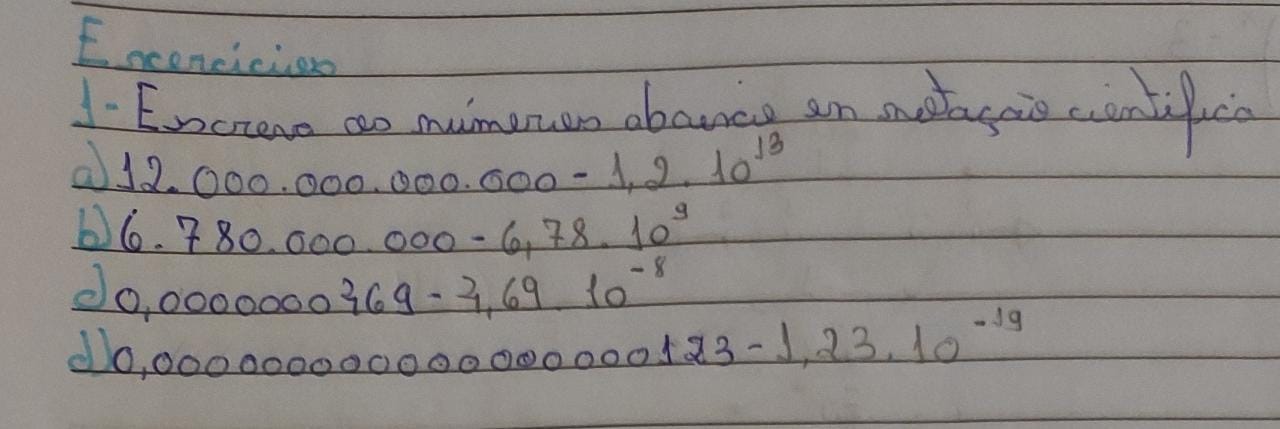 Excercicios
1- Escreva os números abaixo em notação científica
a) 12.000.000.000.000 - 1,2. 10¹³
b) 6.780.000.000 - 6,78. 10⁹
c) 0,0000000369 - 3,69 10⁻⁸
d) 0,000000000000000000123 - 1,23. 10⁻¹⁹